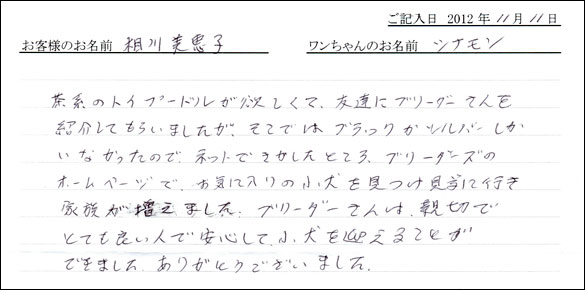 ご記入日 2012 年 11 月 11 日
お客様のお名前 相川 美恵子 ワンちゃんのお名前 シナモン
茶系のトイプードルが欲しくて、友達にブリーダーさんを
紹介してもらいましたが、そこではブラックかシルバーしか
いなかったので、ネットでさがしたところ、ブリーダーズの
ホームページで、お気に入りの小犬を見つけ見学に行き
家族が増えました。ブリーダーさんは、親切で
とても良い人で安心して、小犬を迎えることが
できました。ありがとうございました。